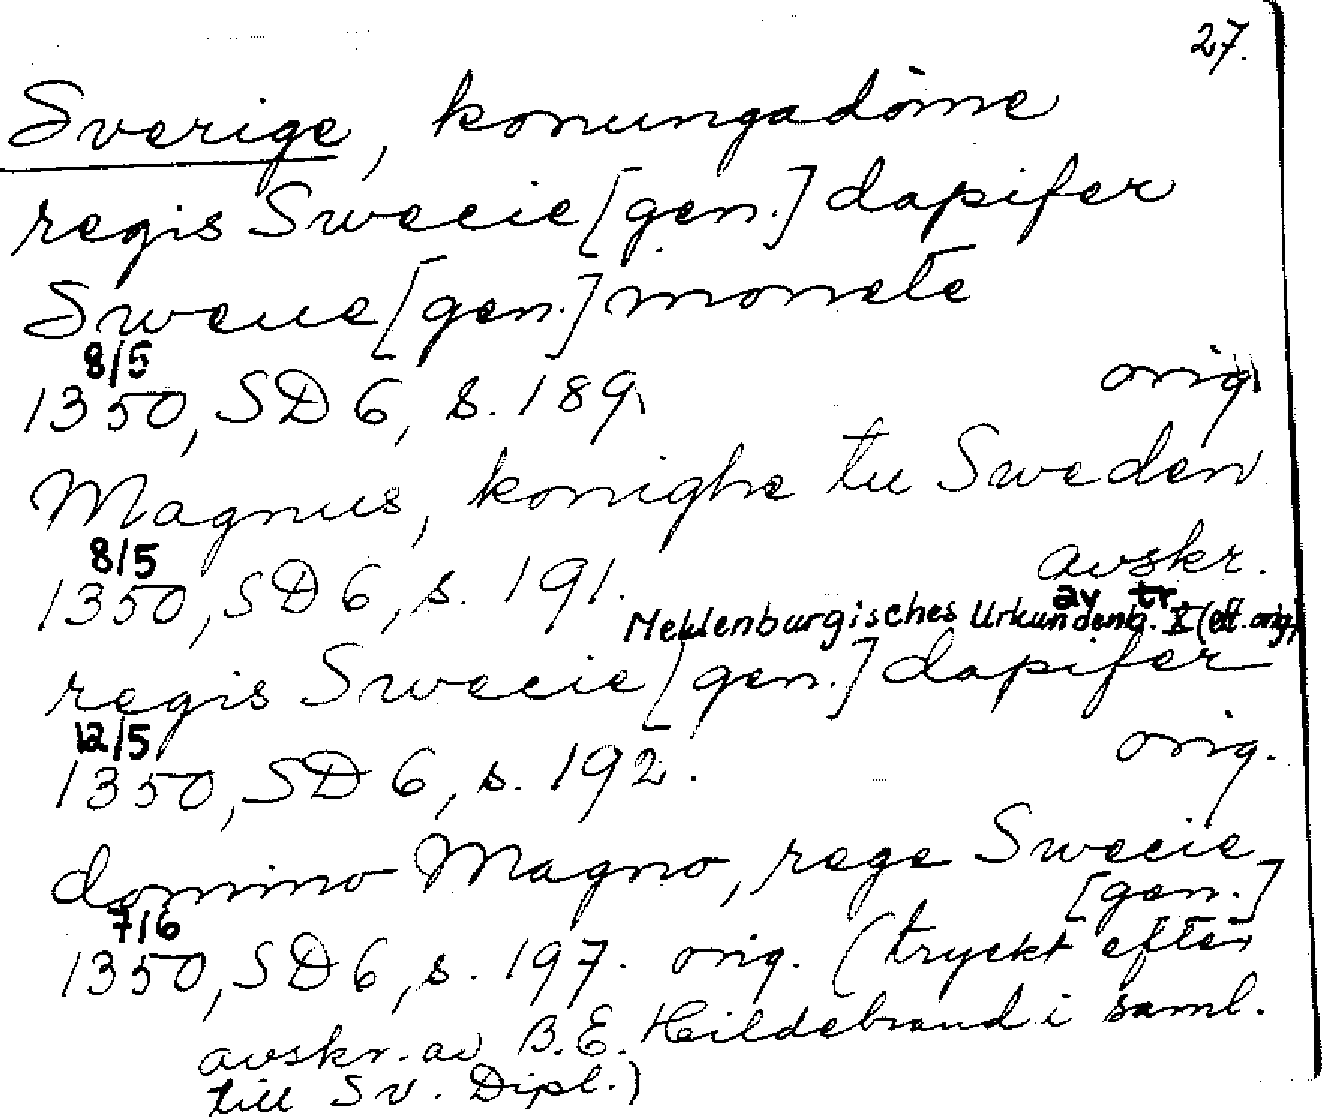 27.
Sverige, konungadöme
regis Swecie [gen.] dapifer
Sweue [gen.] monete
8/5
1350, SD 6, s. 189. orig.
Magnus, konighe tu Sweden
8/5
1350, SD 6, s. 191. avskr.
av tr.
Meklenburgisches Urkundenb. X (eft. orig.)
regis Sweecie [gen.] dapifer
12/5
1350, SD 6, s. 192. orig.
domino Magno, rege Sweeie
[gen.]
7/6
1350, SD 6, s. 197. orig. (tryckt efter
avskr. av B.E. Hildebrand i saml.
till Sv. Dipl.)